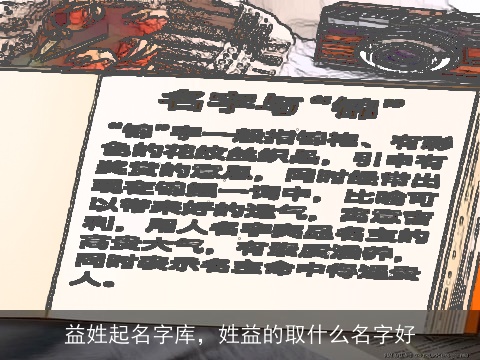 名字与“锦”
“锦”字一般指锦袍、有彩
色的花纹丝织品，引申有
美好的意思，同时锦带出
现在锦鲤一词中，比喻可
以带来好的运气，寓意吉
利，用人名字突显名主的
高贵大气，有素质涵养，
同时表示名主命中得遇贵
人。
益姓起名字库，姓益的取什么名字好